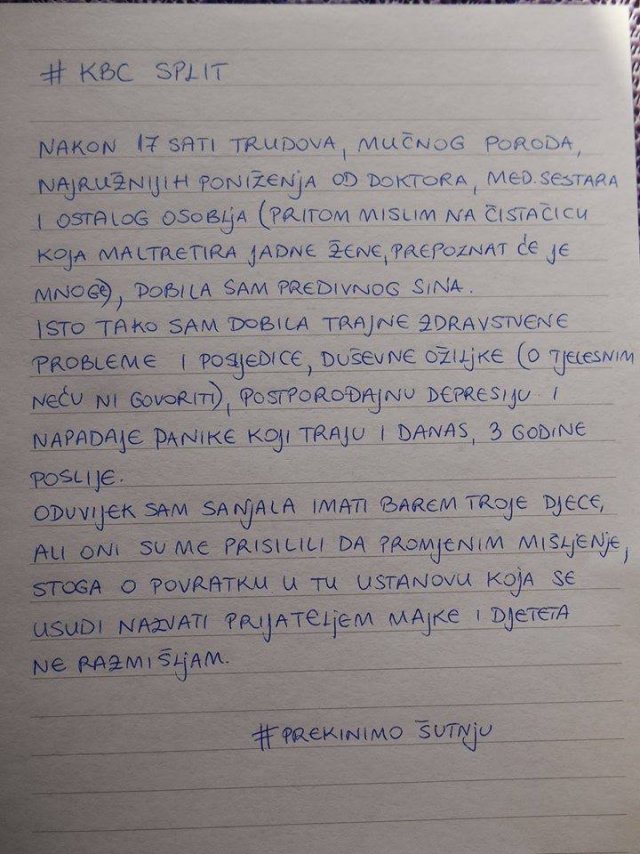 # KBC SPLIT
NAKON 17 SATI TRUDOVA, MUČNOG PORODA,
NAJRUŽNIJIH PONIŽENJA OD DOKTORA, MED. SESTARA
I OSTALOG OSOBLJA (PRITOM MISLIM NA ČISTAČICU
KOJA MALTRETIRA JADNE ŽENE, PREPOZNAT ĆE JE
MNOGE), DOBILA SAM PREDIVNOG SINA.
ISTO TAKO SAM DOBILA TRAJNE ZDRAVSTVENE
PROBLEME I POSLJEDICE, DUŠEVNE OŽILJKE (O TJELESNIM
NEĆU NI GOVORITI), POSTPOROĐAJNU DEPRESIJU I
NAPADAJE PANIKE KOJI TRAJU I DANAS, 3 GODINE
POSLIJE.
ODUVIJEK SAM SANJALA IMATI BAREM TROJE DJECE,
ALI ONI SU ME PRISILILI DA PROMJENIM MIŠLJENJE,
STOGA O POVRATKU U TU USTANOVU KOJA SE
USUDI NAZVATI PRIJATELJEM MAJKE I DJETETA
NE RAZMIŠLJAM.
#PREKINIMO ŠUTNJU